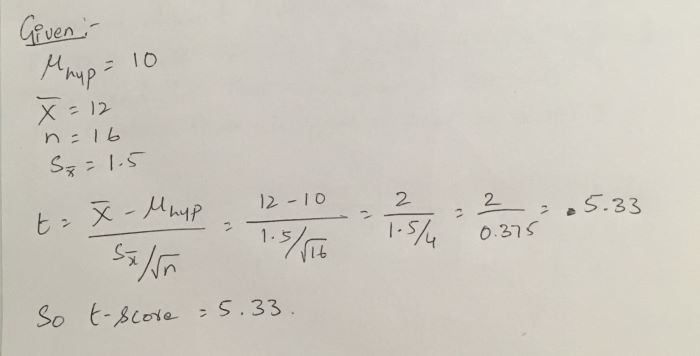 Given :-
μhyp = 10
x̄ = 12
n = 16
Sx̄ = 1.5
t = x̄ - μhyp / Sx̄/√n = 12-10 / 1.5/√16 = 2 / 1.5/4 = 2 / 0.375 = .5.33
So t-score = 5.33.